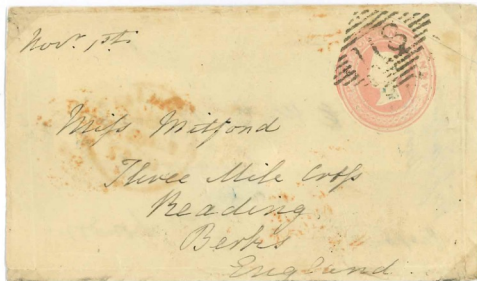 Novr. 1st.
Miss Mitford
Three Mile Cross
Reading
Berks
England.